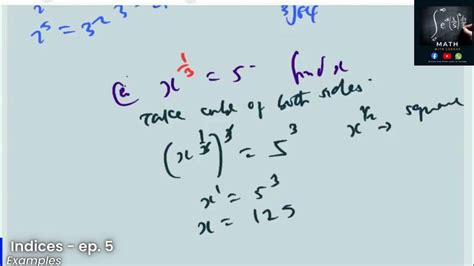 2⁵ = 3²
³√64
e x^(1/3) = 5 find x
Take cube of both sides.
(x^(1/3))³ = 5³
x^(1/2) → square
x¹ = 5³
x = 125
MATH
Indices - ep. 5
Examples